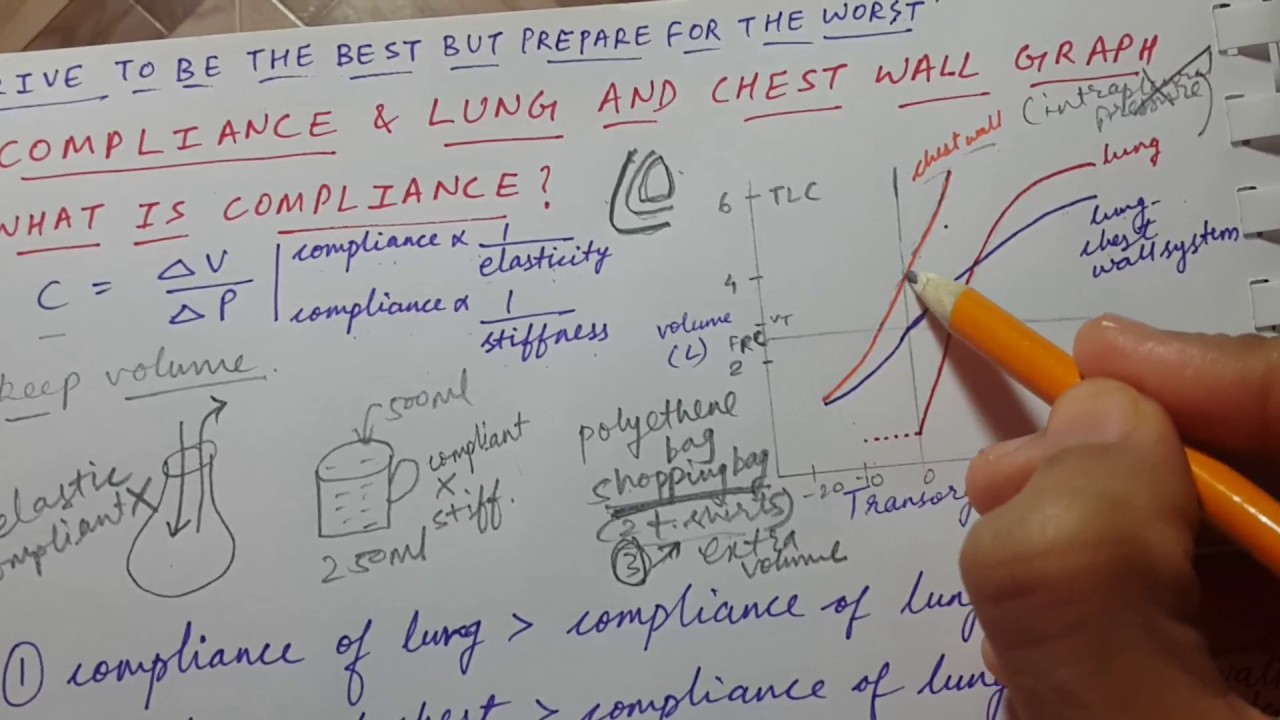 RIVE TO BE THE BEST BUT PREPARE FOR THE WORST
COMPLIANCE & LUNG AND CHEST WALL GRAPH
WHAT IS COMPLIANCE?
C = ΔV / ΔP
compliance α 1/elasticity
compliance α 1/stiffness
keep volume.
elastic
compliant X
500ml
250ml
compliant
X
stiff.
polyethene
bag
shopping bag
(2 t.shirts)
3 → extra
volume
chest wall
(intrapleural
pressure)
lung
lung-
chest
wall system
6 TLC
4
VT
volume
(L)
FRC
2
-20 -10 0
Transor
① compliance of lung > compliance of lun
chest > compliance of lung